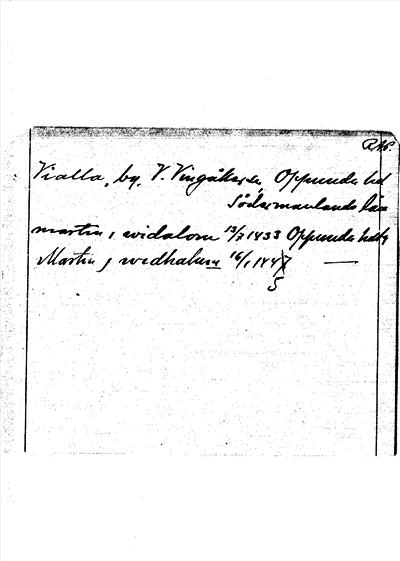 RAP.
Vialla, by, V. Vingåkers sn, Oppunda hd
Södermanlands län
martin i widalom 13/3 1433 Oppunda hdtg
Martin j wedhalum 16/1 1447 —
5